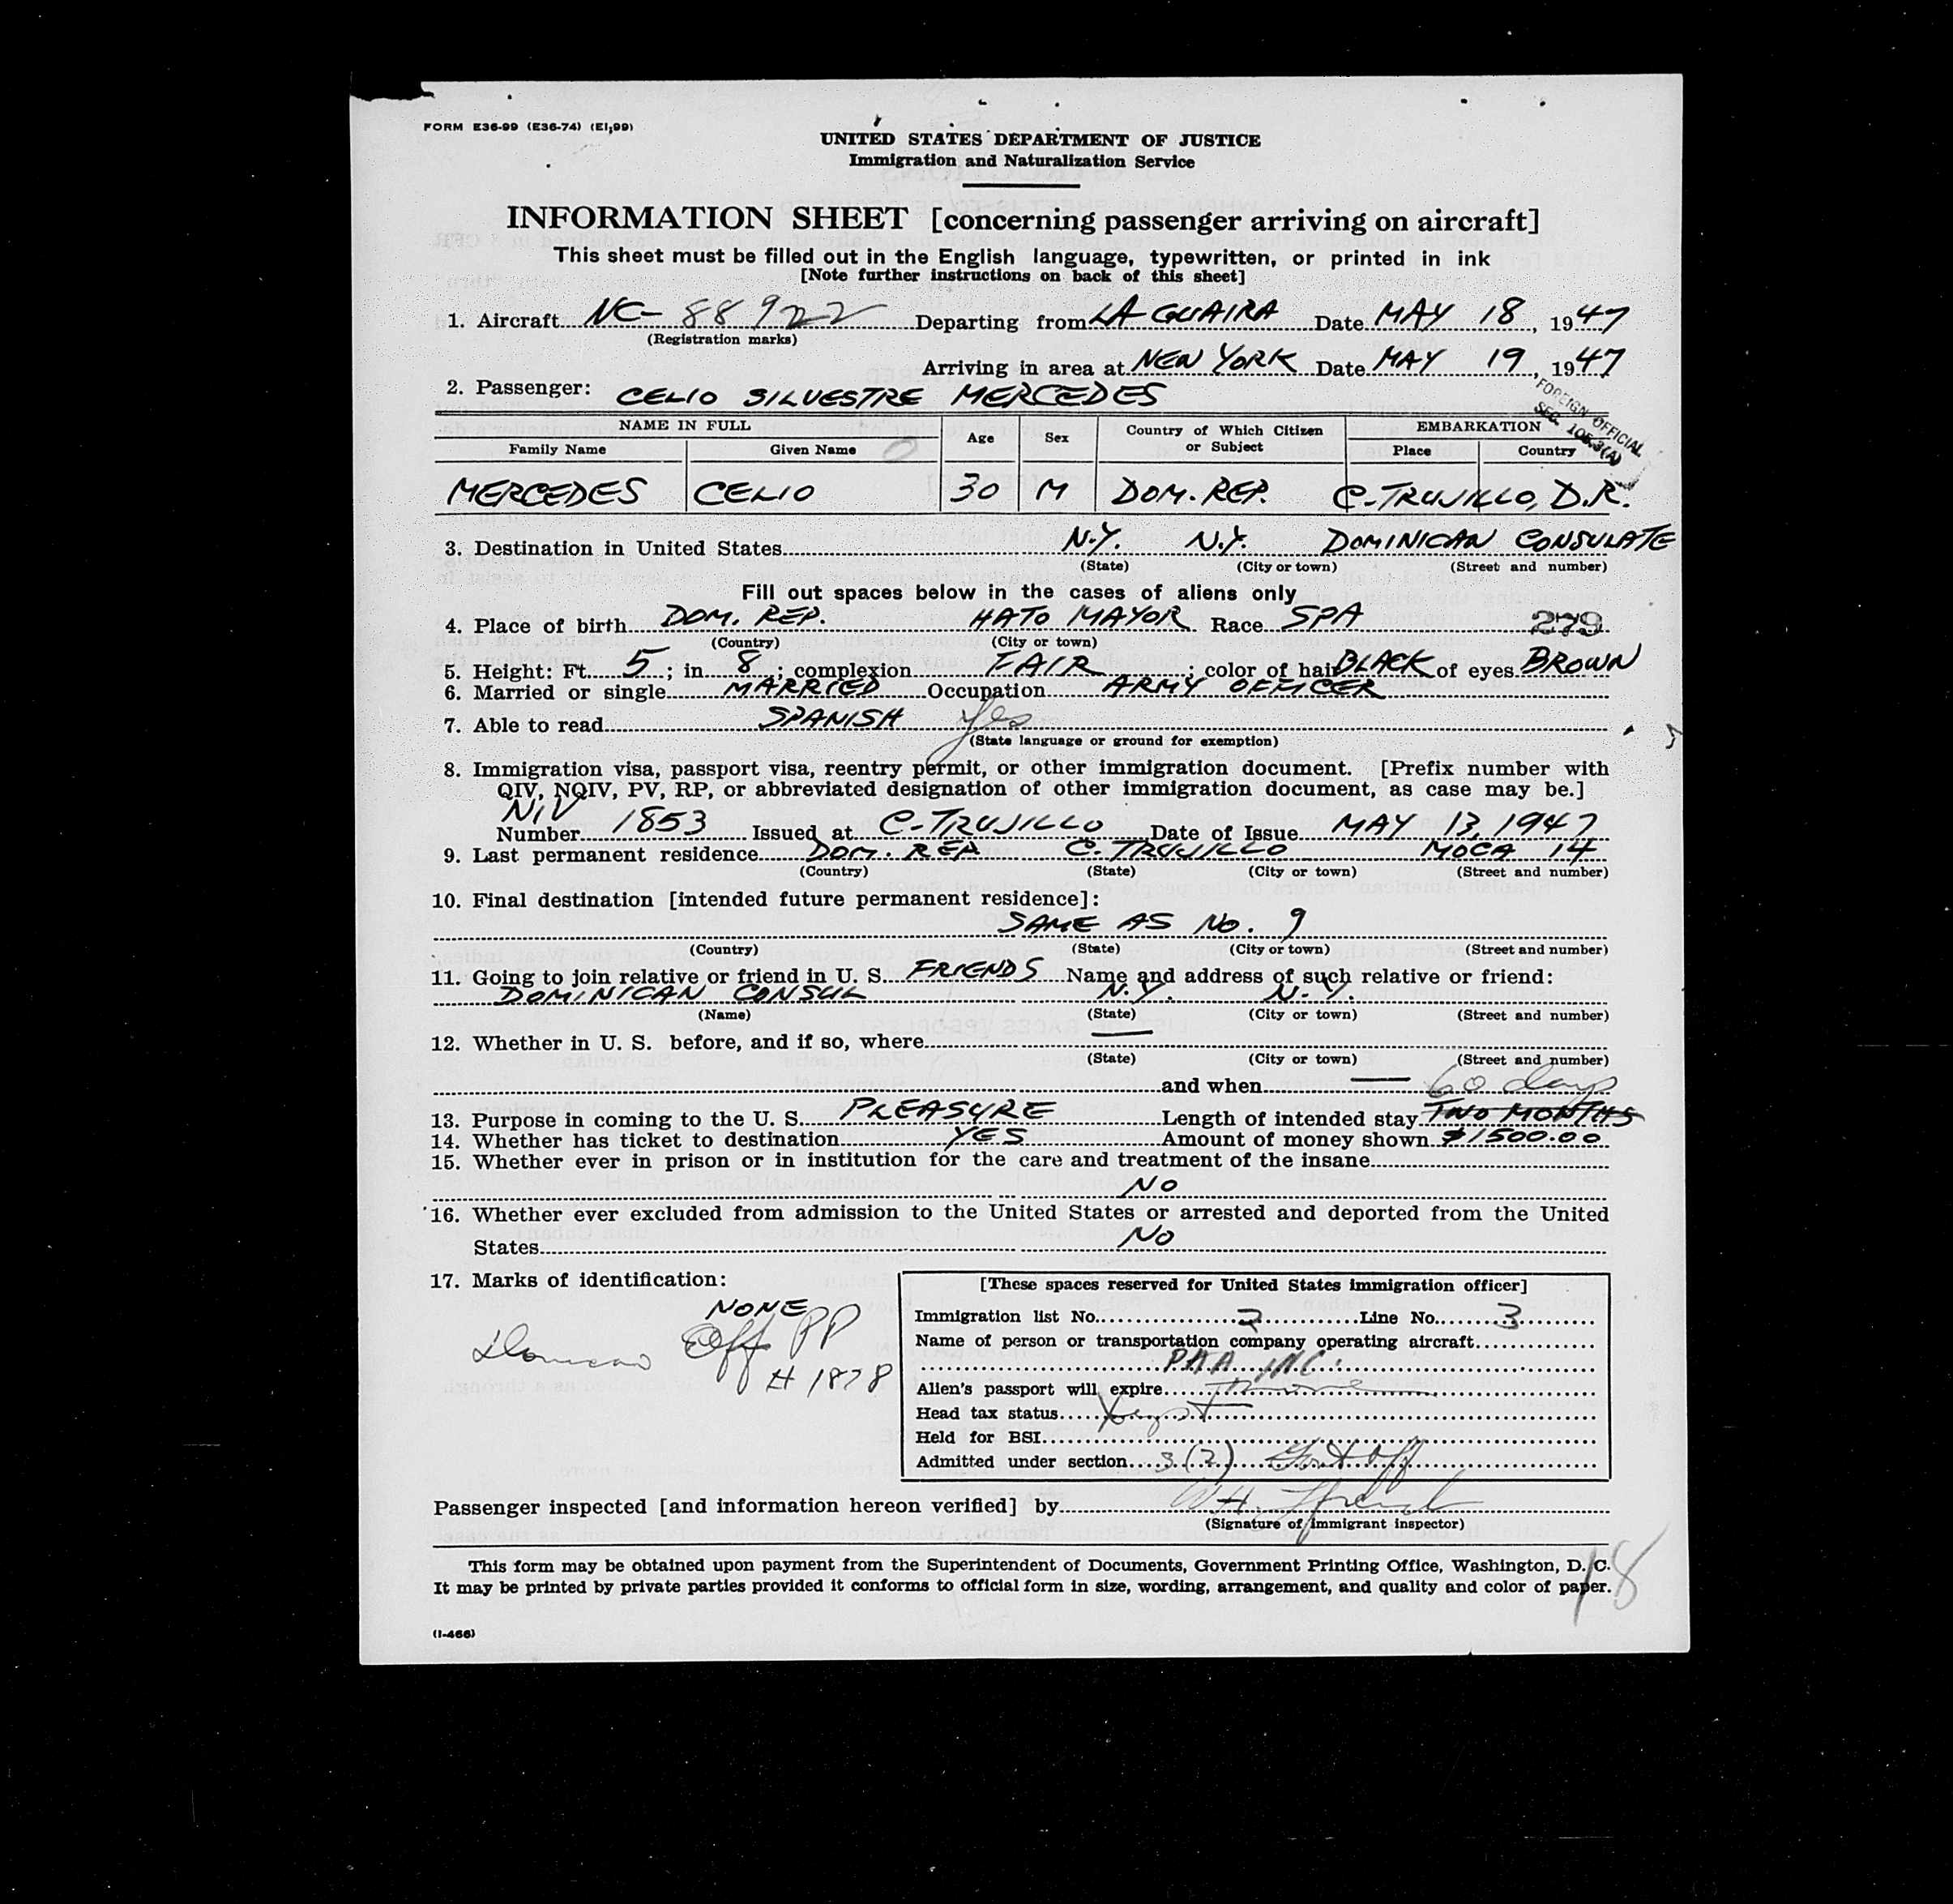 FORM E36-99 (E36-74) (EI,99)
UNITED STATES DEPARTMENT OF JUSTICE
Immigration and Naturalization Service
INFORMATION SHEET [concerning passenger arriving on aircraft]
This sheet must be filled out in the English language, typewritten, or printed in ink
[Note further instructions on back of this sheet]
1. Aircraft NC- 88922 Departing from LA GUAIRA Date MAY 18, 1947
(Registration marks)
Arriving in area at NEW YORK Date MAY 19, 1947
2. Passenger: CELIO SILVESTRE MERCEDES
FOREIGN OFFICIAL
SEC. 105.3(A)
NAME IN FULL Age Sex Country of Which Citizen or Subject EMBARKATION
Family Name Given Name Place Country
MERCEDES CELIO 30 M DOM. REP. C-TRUJILLO, D.R.
3. Destination in United States N.Y. N.Y. DOMINICAN CONSULATE
(State) (City or town) (Street and number)
Fill out spaces below in the cases of aliens only
4. Place of birth DOM. REP. HATO MAYOR Race SPA 279
(Country) (City or town)
5. Height: Ft. 5; in 8; complexion FAIR; color of hair BLACK of eyes BROWN
6. Married or single MARRIED Occupation ARMY OFFICER
7. Able to read SPANISH yes
(State language or ground for exemption)
8. Immigration visa, passport visa, reentry permit, or other immigration document. [Prefix number with
QIV, NQIV, PV, RP, or abbreviated designation of other immigration document, as case may be.]
NIV
Number 1853 Issued at C-TRUJILLO Date of Issue MAY 13, 1947
9. Last permanent residence DOM. REP C. TRUJILLO MOCA 14
(Country) (State) (City or town) (Street and number)
10. Final destination [intended future permanent residence]:
SAME AS NO. 9
(Country) (State) (City or town) (Street and number)
11. Going to join relative or friend in U. S. FRIENDS Name and address of such relative or friend:
DOMINICAN CONSUL N.Y. N.Y.
(Name) (State) (City or town) (Street and number)
12. Whether in U. S. before, and if so, where —
(State) (City or town) (Street and number)
and when — 60 days
13. Purpose in coming to the U. S. PLEASURE Length of intended stay TWO MONTHS
14. Whether has ticket to destination YES Amount of money shown $1500.00
15. Whether ever in prison or in institution for the care and treatment of the insane
NO
16. Whether ever excluded from admission to the United States or arrested and deported from the United
States NO
17. Marks of identification:
NONE
Off PP
# 1878
[These spaces reserved for United States immigration officer]
Immigration list No. 2 Line No. 3
Name of person or transportation company operating aircraft
PAA INC.
Alien's passport will expire
Head tax status
Held for BSI
Admitted under section 3(2) Govt Off
Passenger inspected [and information hereon verified] by W.H.
(Signature of immigrant inspector)
This form may be obtained upon payment from the Superintendent of Documents, Government Printing Office, Washington, D. C.
It may be printed by private parties provided it conforms to official form in size, wording, arrangement, and quality and color of paper.
18
(I-466)